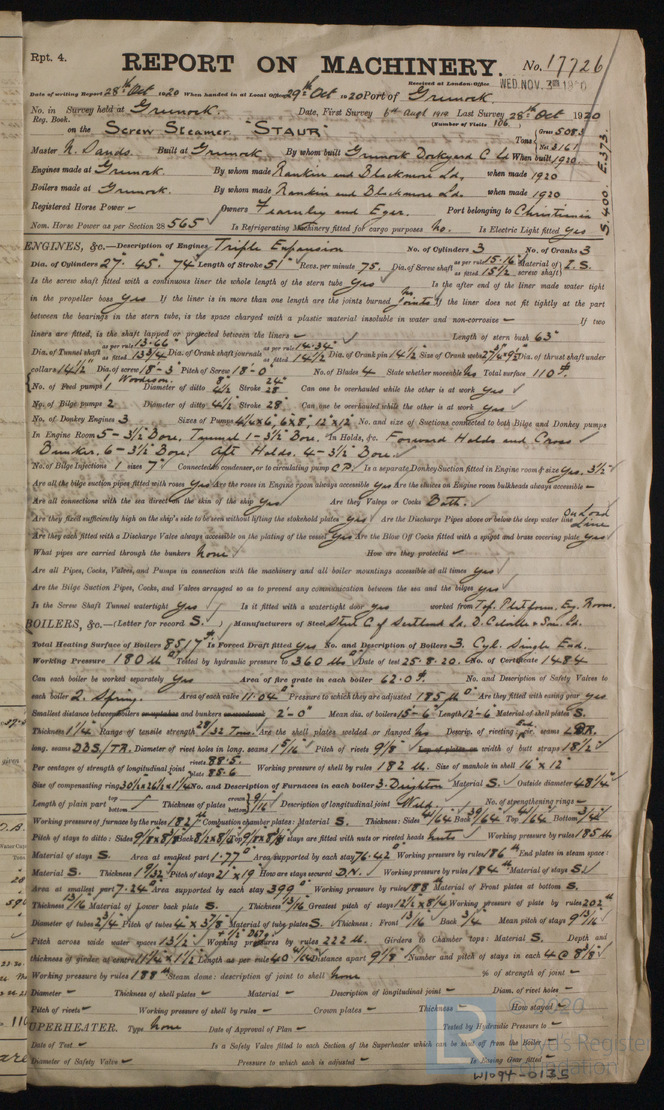 Rpt. 4.
REPORT ON MACHINERY.
No. 17726
Received at London Office WED. NOV. 3
Date of writing Report 28th Oct 1920 When handed in at Local Office 29th Oct 1920 Port of Greenock
No. in Survey held at Greenock. Date, First Survey 6th Augt 1919 Last Survey 28th Oct 1920
Reg. Book. (Number of Visits 106
on the Screw Steamer "STAUR" Tons Gross 5083 Net 3161
Master N. Sands. Built at Greenock By whom built Greenock Dockyard C Ld When built 1920.
Engines made at Greenock. By whom made Rankin and Blackmore Ld. when made 1920
Boilers made at Greenock. By whom made Rankin and Blackmore Ld. when made 1920
Registered Horse Power Owners Fearnley and Eger. Port belonging to Christiania
Nom. Horse Power as per Section 28 565 Is Refrigerating Machinery fitted for cargo purposes No. Is Electric Light fitted Yes
S. 400. E. 373.
ENGINES, &c.—Description of Engines Triple Expansion No. of Cylinders 3 No. of Cranks 3
Dia. of Cylinders 27" 45" 74" Length of Stroke 51" Revs. per minute 75. Dia. of Screw shaft as per rule 15.16" as fitted 15½" Material of screw shaft I.S.
Is the screw shaft fitted with a continuous liner the whole length of the stern tube Yes Is the after end of the liner made water tight
in the propeller boss Yes If the liner is in more than one length are the joints burned No Joints If the liner does not fit tightly at the part
between the bearings in the stern tube, is the space charged with a plastic material insoluble in water and non-corrosive – If two
liners are fitted, is the shaft lapped or protected between the liners – Length of stern bush 63"
Dia. of Tunnel shaft as per rule 13.66" as fitted 13¾ Dia. of Crank shaft journals as per rule 14.34" as fitted 14½ Dia. of Crank pin 14½" Size of Crank webs Dia. of thrust shaft under
collars 14½" Dia. of screw 18-3 Pitch of Screw 18-0" No. of Blades 4 State whether moveable No Total surface 110
No. of Feed pumps Diameter of ditto 4½ Stroke 28" Can one be overhauled while the other is at work Yes
No. of Bilge pumps 2 Diameter of ditto 4½" Stroke 28" Can one be overhauled while the other is at work Yes
No. of Donkey Engines 3 Sizes of Pumps No. and size of Suctions connected to both Bilge and Donkey pumps
In Engine Room 5 - 3½ Bore, Tunnel 1-3½ Bore. In Holds, &c. Forward Holds and Cross
Bunker. 6-3½ Bore. Aft Holds. 4-3½ Bore.
No. of Bilge Injections 1 sizes 7" Connected to condenser, or to circulating pump C.P. Is a separate Donkey Suction fitted in Engine room & size Yes. 3½"
Are all the bilge suction pipes fitted with roses Yes Are the roses in Engine room always accessible Yes Are the sluices on Engine room bulkheads always accessible –
Are all connections with the sea direct on the skin of the ship Yes Are they Valves or Cocks Both.
Are they fixed sufficiently high on the ship's side to be seen without lifting the stokehold plates Yes Are the Discharge Pipes above or below the deep water line On Load Line
Are they each fitted with a Discharge Valve always accessible on the plating of the vessel Yes Are the Blow Off Cocks fitted with a spigot and brass covering plate Yes
What pipes are carried through the bunkers None How are they protected –
Are all Pipes, Cocks, Valves, and Pumps in connection with the machinery and all boiler mountings accessible at all times Yes
Are the Bilge Suction Pipes, Cocks, and Valves arranged so as to prevent any communication between the sea and the bilges Yes
Is the Screw Shaft Tunnel watertight Yes Is it fitted with a watertight door Yes worked from Top Platform. Eng. Room.
BOILERS, &c.—(Letter for record S.) Manufacturers of Steel Steel C of Scotland Ld. D. Colville & Sons Ld.
Total Heating Surface of Boilers 8517 Is Forced Draft fitted Yes No. and Description of Boilers 3. Cyl. Single End.
Working Pressure 180 lb Tested by hydraulic pressure to 360 lbs Date of test 25.8.20. No. of Certificate 1484
Can each boiler be worked separately Yes Area of fire grate in each boiler 62.0 No. and Description of Safety Valves to
each boiler 2. Spring. Area of each valve 11.04 Pressure to which they are adjusted 185 lb Are they fitted with easing gear Yes
Smallest distance between boilers or uptakes and bunkers or woodwork 2'-0" Mean dia. of boilers 15-6" Length 12-6" Material of shell plates S.
Thickness 1¼ Range of tensile strength 28/32 Tons Are the shell plates welded or flanged No Descrip. of riveting: cir. seams L.D.R.
long. seams DBS/TR. Diameter of rivet holes in long. seams 1 5/16" Pitch of rivets 9 1/8" Lap of plates or width of butt straps 18½"
Per centages of strength of longitudinal joint rivets 88.5. plate 85.6 Working pressure of shell by rules 182 lb. Size of manhole in shell 16" x 12"
Size of compensating ring No. and Description of Furnaces in each boiler 3. Deighton Material S. Outside diameter 48¼"
Length of plain part top bottom Thickness of plates crown bottom 9/16" Description of longitudinal joint Weld. No. of strengthening rings –
Working pressure of furnace by the rules 182 Combustion chamber plates: Material S. Thickness: Sides 41/64 Back 39/64 Top 41/64 Bottom 3/4"
Pitch of stays to ditto: Sides Back Top If stays are fitted with nuts or riveted heads Nuts Working pressure by rules 185 lb
Material of stays S. Area at smallest part 1.77 Area supported by each stay 76.42 Working pressure by rules 186 End plates in steam space:
Material S. Thickness 1 9/32" Pitch of stays 21 x 19 How are stays secured D.N. Working pressure by rules 184 Material of stays S.
Area at smallest part 7.24 Area supported by each stay 399 Working pressure by rules 188 Material of Front plates at bottom S.
Thickness 13/16 Material of Lower back plate S. Thickness 13/16 Greatest pitch of stays 12½ x 8¼ Working pressure of plate by rules 202
Diameter of tubes 2¾ Pitch of tubes 4" x 3 7/8 Material of tube plates S. Thickness: Front 13/16 Back 3/4 Mean pitch of stays 9
Pitch across wide water spaces 13½ Working pressures by rules 222 lb. Girders to Chamber tops: Material S. Depth and
thickness of girder at centre Length as per rule Distance apart 9 1/8" Number and pitch of stays in each 4 @ 8 1/8"
Working pressure by rules 188 Steam dome: description of joint to shell None % of strength of joint –
Diameter – Thickness of shell plates – Material – Description of longitudinal joint – Diam. of rivet holes –
Pitch of rivets – Working pressure of shell by rules – Crown plates – Thickness – How stayed –
SUPERHEATER. Type None Date of Approval of Plan – Tested by Hydraulic Pressure to –
Date of Test – Is a Safety Valve fitted to each Section of the Superheater which can be shut off from the Boiler
Diameter of Safety Valve – Pressure to which each is adjusted – Is Easing Gear fitted –
© 2020
Lloyd's Register
Foundation
W1094-0135